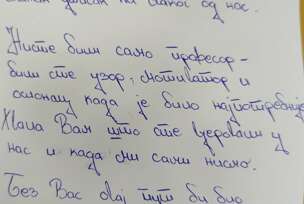 од нас.
Нисте били само професор –
били сте узор, мотиватор и
ослонац када је било најпотребније
Хвала Вам што сте веровали у
нас и када ми сами нисмо.
Без Вас овај пут би био